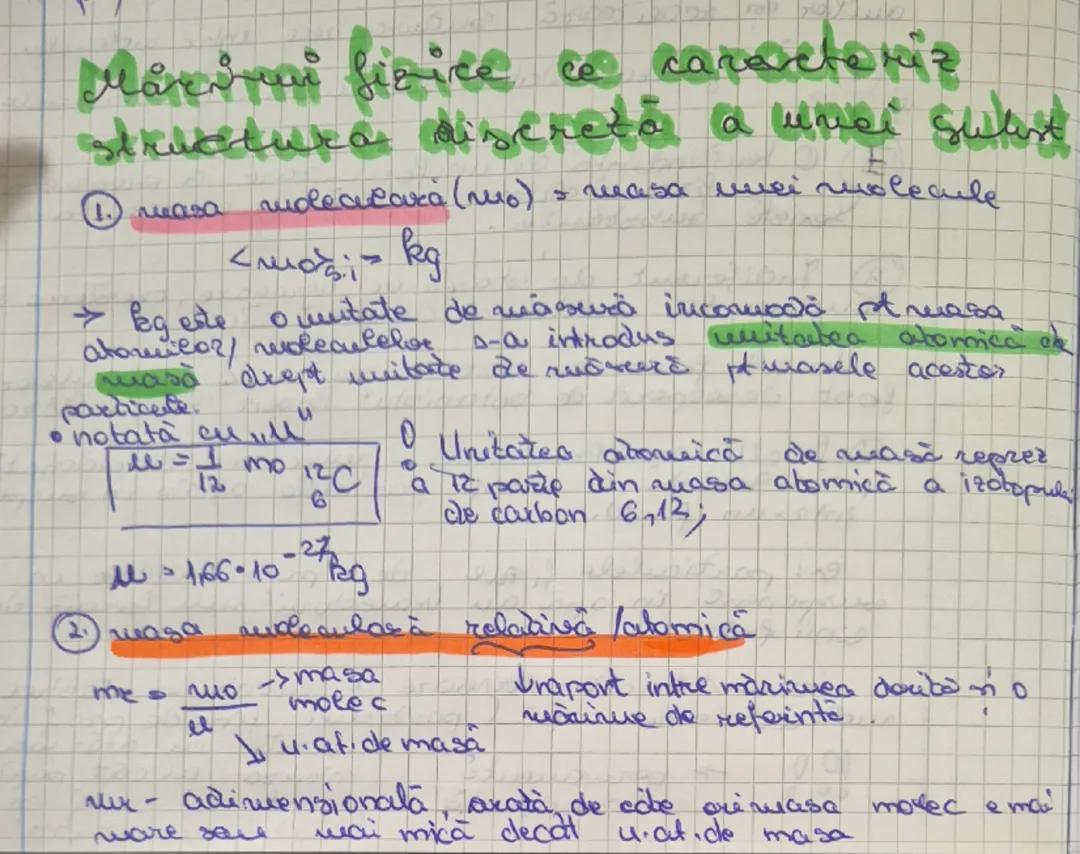 Mărimi fizice ce caracteriz
structura discretă a unei subst
1. masa moleculară (mo) = masa unei molecule
<mo>S.i = kg
→ kg este o unitate de măsură incomodă pt masa
atomilor/ moleculelor s-a introdus unitatea atomică de
masă drept unitate de măsură pt masele acestor
particule.
• notată cu „u"
u = 1/12 mo ¹²₆C
Unitatea atomică de masă reprez
a 12 parte din masa atomică a izotopului
de carbon 6,12;
u = 1,66•10⁻²⁷kg
2. masa moleculară relativă /atomică
mr = mo/u → masa molec
↳ u.at.de masă
raport între mărimea dorită și o
mărime de referintă.
mr - adimensională, arată de câte ori masa molec e mai
mare sau mai mică decât u.at.de masa